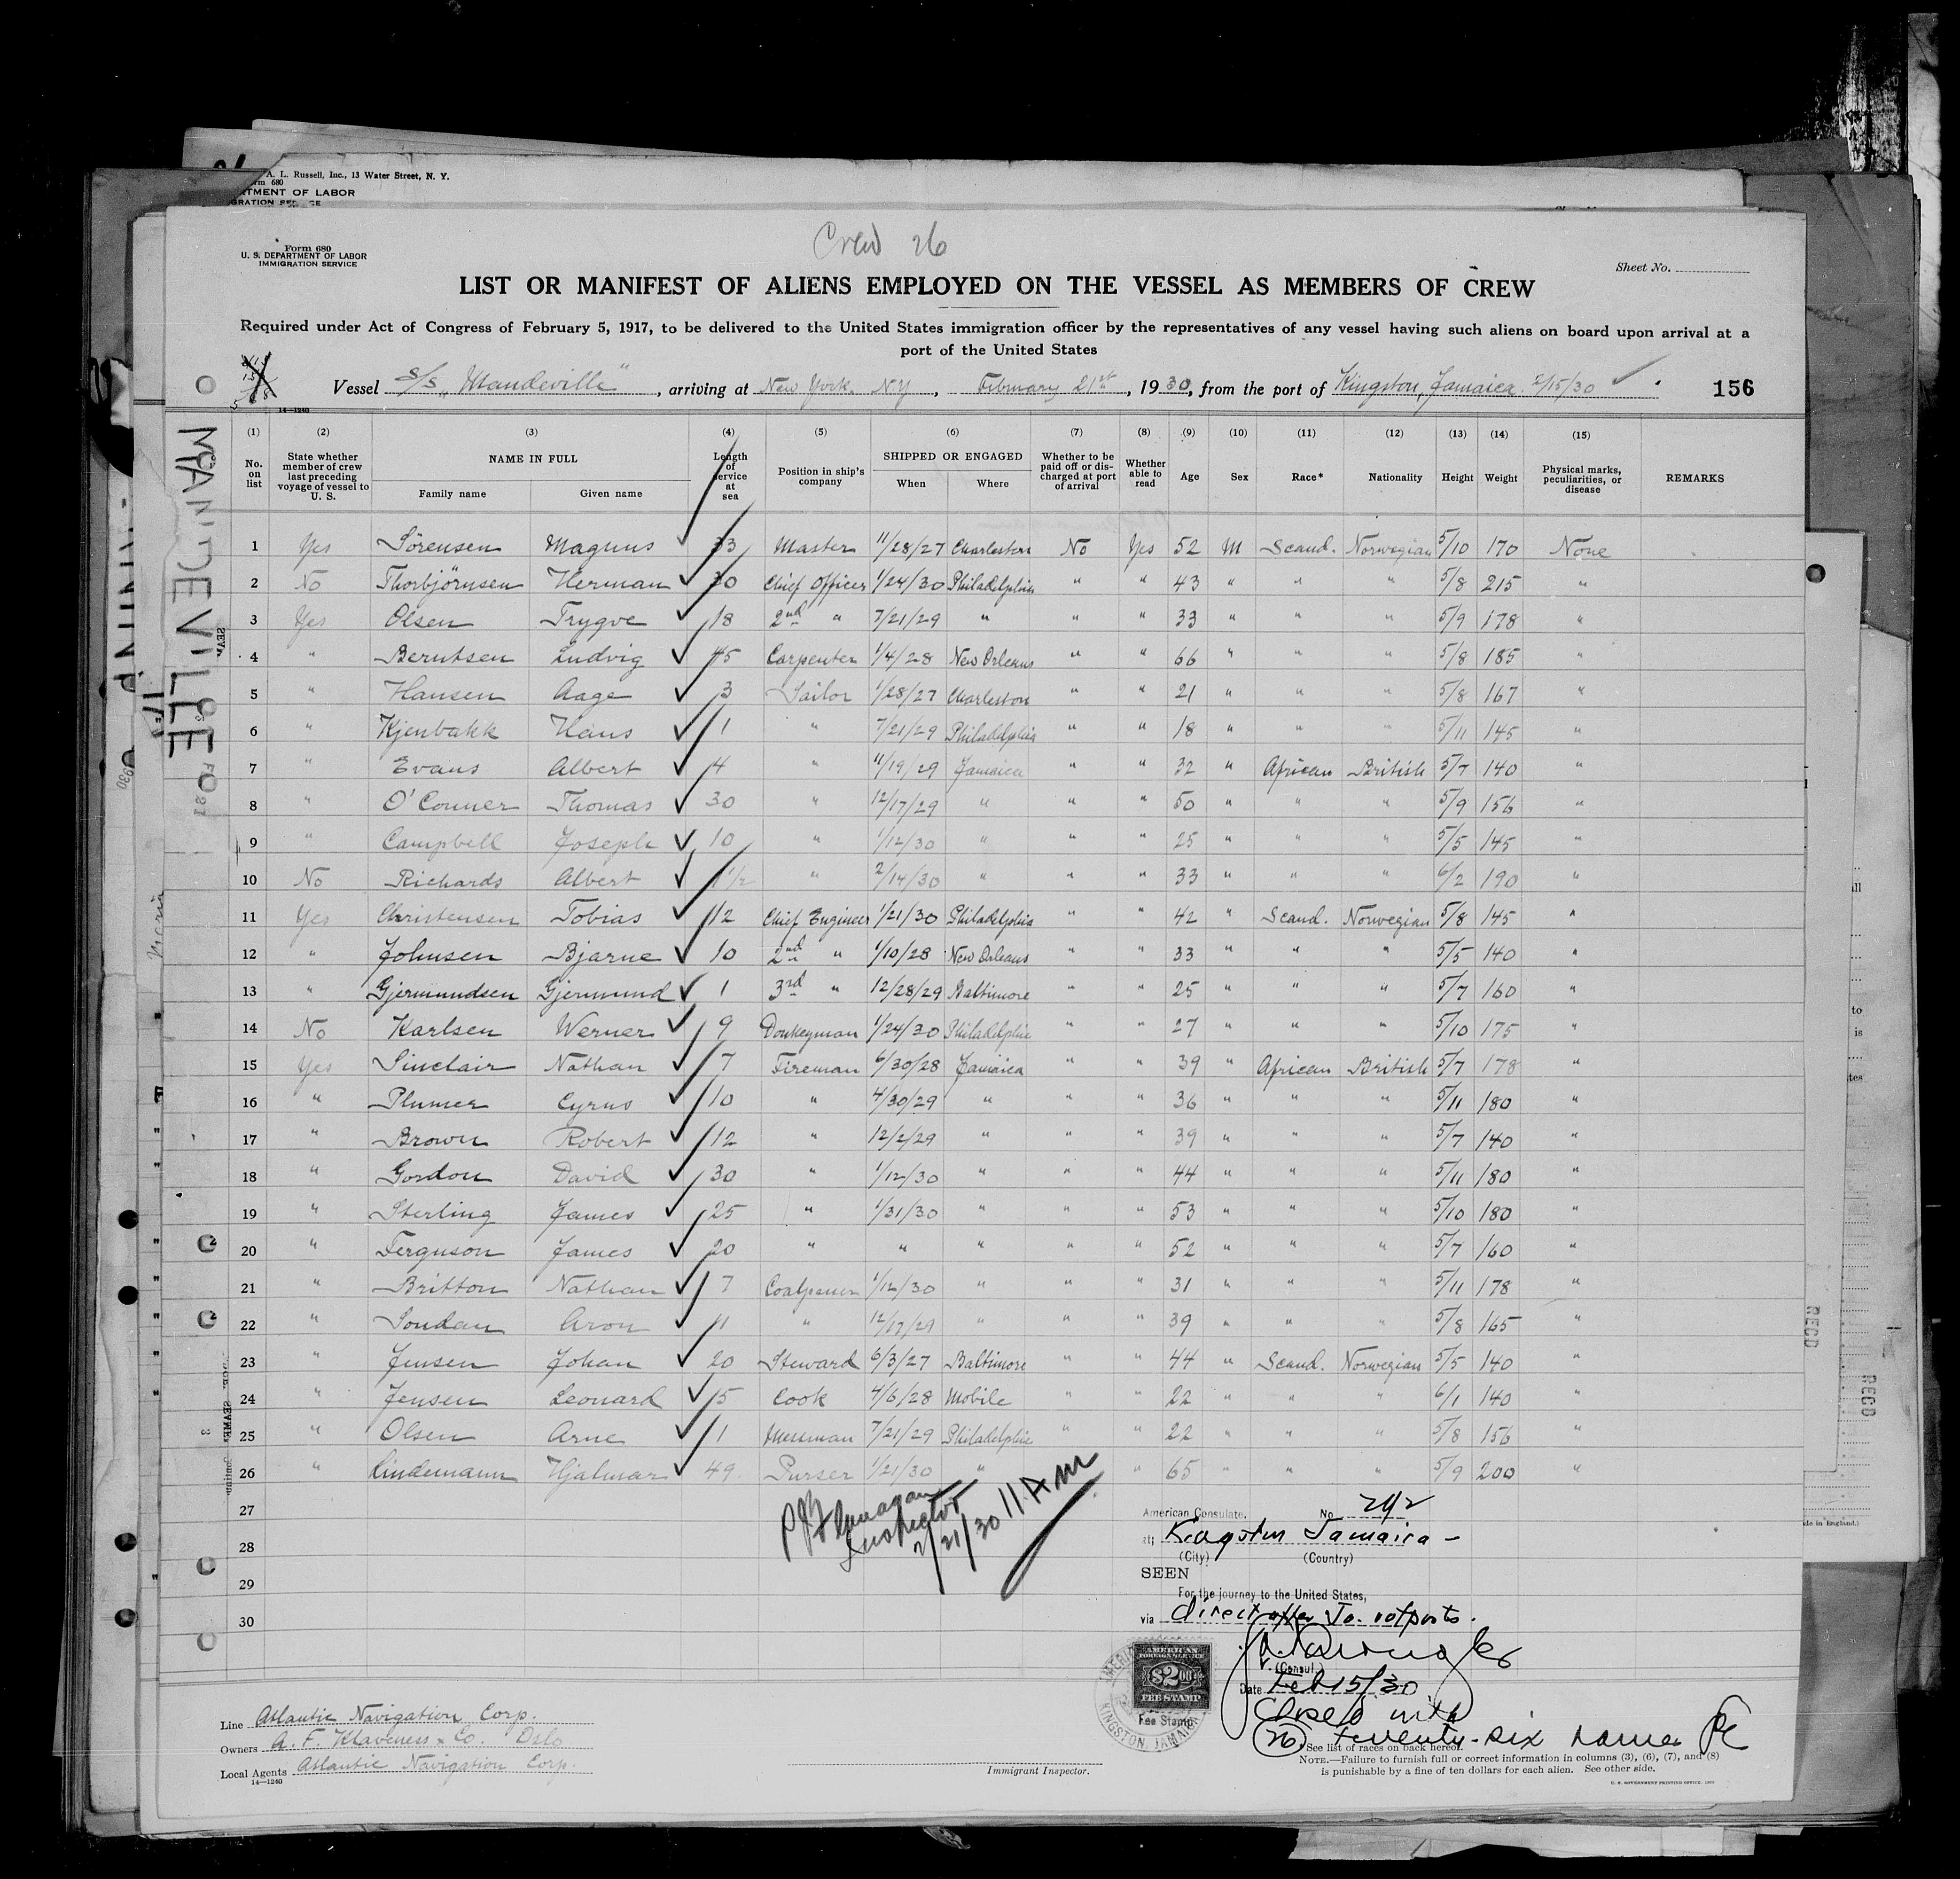 A. L. Russell, Inc., 13 Water Street, N. Y.
Form 680
U. S. DEPARTMENT OF LABOR
IMMIGRATION SERVICE
Crew 26
Sheet No.
LIST OR MANIFEST OF ALIENS EMPLOYED ON THE VESSEL AS MEMBERS OF CREW
Required under Act of Congress of February 5, 1917, to be delivered to the United States immigration officer by the representatives of any vessel having such aliens on board upon arrival at a
port of the United States
Vessel S/S "Mandeville", arriving at New York. N.Y, February 21st, 1930, from the port of Kingston, Jamaica 2/15/30 156
14—1240
MANDEVILLE
(1) (2) (3) (4) (5) (6) (7) (8) (9) (10) (11) (12) (13) (14) (15)
No. on list State whether member of crew last preceding voyage of vessel to U. S. NAME IN FULL Family name Given name Length of service at sea Position in ship's company SHIPPED OR ENGAGED When Where Whether to be paid off or discharged at port of arrival Whether able to read Age Sex Race* Nationality Height Weight Physical marks, peculiarities, or disease REMARKS
1 Yes Sörensen Magnus 33 Master 11/28/27 Charleston No Yes 52 M Scand. Norwegian 5/10 170 None
2 No Thorbjörnsen Herman 30 Chief Officer 1/24/30 Philadelphia " " 43 " " " 5/8 215 "
3 Yes Olsen Trygve 18 2nd " 7/21/29 " " " 33 " " " 5/9 178 "
4 " Berntsen Ludvig 45 Carpenter 1/4/28 New Orleans " " 66 " " " 5/8 185 "
5 " Hansen Aage 3 Sailor 1/28/27 Charleston " " 21 " " " 5/8 167 "
6 " Kjenbakk Hans 1 " 7/21/29 Philadelphia " " 18 " " " 5/11 145 "
7 " Evans Albert 4 " 11/19/29 Jamaica " " 32 " African British 5/7 140 "
8 " O'Conner Thomas 30 " 12/17/29 " " " 50 " " " 5/9 156 "
9 " Campbell Joseph 10 " 1/12/30 " " " 25 " " " 5/5 145 "
10 No Richards Albert 1 1/2 " 2/14/30 " " " 33 " " " 6/2 190 "
11 Yes Christensen Tobias 12 Chief Engineer 1/21/30 Philadelphia " " 42 " Scand. Norwegian 5/8 145 "
12 " Johnsen Bjarne 10 2nd " 1/10/28 New Orleans " " 33 " " " 5/5 140 "
13 " Gjermundsen Gjermund 1 3rd " 12/28/29 Baltimore " " 25 " " " 5/7 160 "
14 No Karlsen Werner 9 Donkeyman 1/24/30 Philadelphia " " 27 " " " 5/10 175 "
15 Yes Sinclair Nathan 7 Fireman 6/30/28 Jamaica " " 39 " African British 5/7 178 "
16 " Plumer Cyrus 10 " 4/30/29 " " " 36 " " " 5/11 180 "
17 " Brown Robert 12 " 12/2/29 " " " 39 " " " 5/7 140 "
18 " Gordon David 30 " 1/12/30 " " " 44 " " " 5/11 180 "
19 " Sterling James 25 " 1/31/30 " " " 53 " " " 5/10 180 "
20 " Ferguson James 20 " " " " " 52 " " " 5/7 160 "
21 " Britton Nathan 7 Coalpasser 1/12/30 " " " 31 " " " 5/11 178 "
22 " Soudan Aron 11 " 12/17/29 " " " 39 " " " 5/8 165 "
23 " Jensen Johan 20 Steward 6/3/27 Baltimore " " 44 " Scand. Norwegian 5/5 140 "
24 " Jensen Leonard 5 Cook 4/6/28 Mobile " " 22 " " " 6/1 140 "
25 " Olsen Arne 1 Messman 7/21/29 Philadelphia " " 22 " " " 5/8 156 "
26 " Lindemann Hjalmar 49 Purser 1/21/30 " " 65 " " " 5/9 200 "
27
28
29
30
P J Flanagan
Inspector
2/21/30 11 AM
American Consulate. No.
at Kingston Jamaica -
(City) (Country)
SEEN
For the journey to the United States,
via direct after Ja. outports.
(Consul.)
Date Feb 15/30
Closed with
(26) twenty-six names
AMERICAN
FOREIGN SERVICE
$2.00
FEE STAMP
Fee Stamp
KINGSTON, JAMAICA
Line Atlantic Navigation Corp.
Owners A. F. Klaveness & Co. Oslo
Local Agents Atlantic Navigation Corp.
14—1240
Immigrant Inspector.
*See list of races on back hereof.
NOTE.—Failure to furnish full or correct information in columns (3), (6), (7), and (8)
is punishable by a fine of ten dollars for each alien. See other side.
U. S. GOVERNMENT PRINTING OFFICE
RECD
RECD